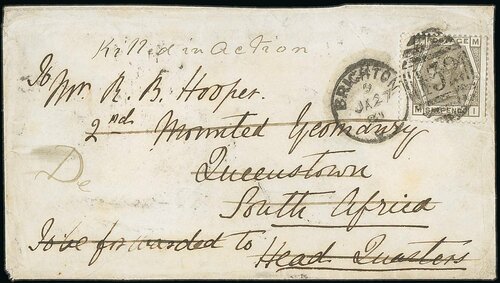 Killed in action
To
Mr. R. B. Hooper.
2nd Mounted Yeomanry
Queenstown
South Africa
To be forwarded to Head Quarters
De
BRIGHTON
JA 27
POSTAGE
M
132
M
SIXPENCE
I